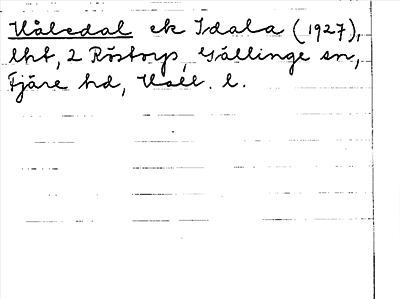 Håledal ek Idala (1927),
lht, 2 Röstorp, Gällinge sn,
Fjäre hd, Hall. l.